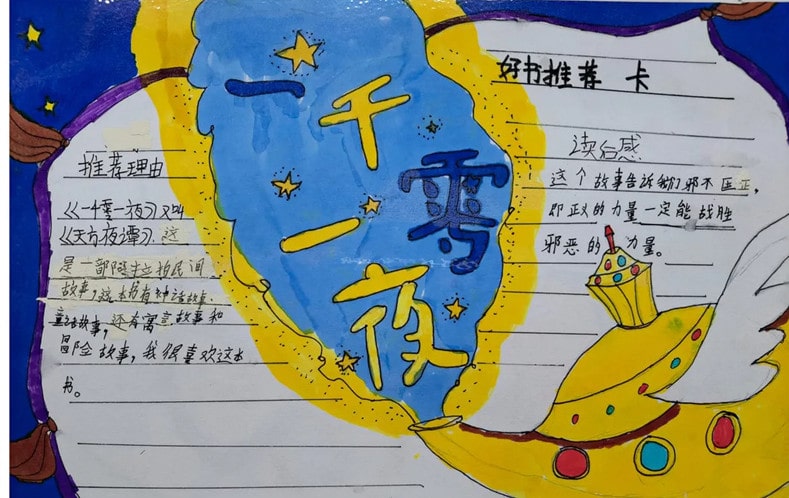 一千零一夜
推荐理由
《一千零一夜》又叫
《天方夜谭》.这
是一部阿拉伯民间
故事,这本书有神话故事、
童话故事,还有寓言故事和
冒险故事,我很喜欢这本
书。
好书推荐 卡
读后感
这个故事告诉我们邪不压正,
即正义的力量一定能战胜
邪恶的力量。